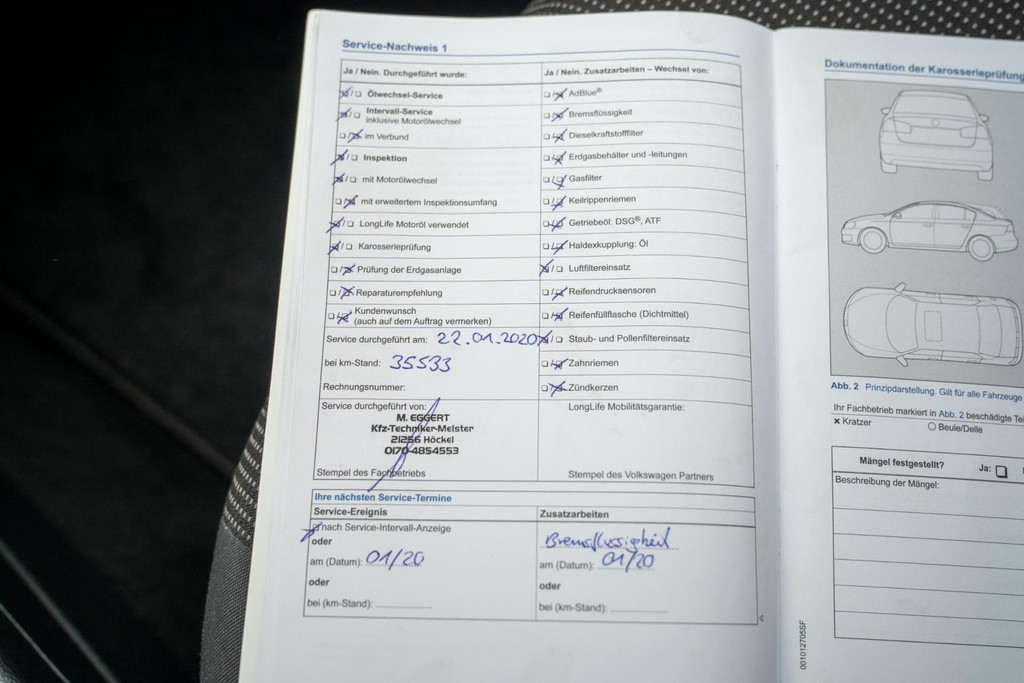 Service-Nachweis 1
Ja / Nein. Durchgeführt wurde:
Ölwechsel-Service
Intervall-Service
inklusive Motorölwechsel
im Verbund
Inspektion
mit Motorölwechsel
mit erweitertem Inspektionsumfang
LongLife Motoröl verwendet
Karosserieprüfung
Prüfung der Erdgasanlage
Reparaturempfehlung
Kundenwunsch
(auch auf dem Auftrag vermerken)
Service durchgeführt am: 22.01.2020
bei km-Stand: 35533
Rechnungsnummer:
Service durchgeführt von:
M. EGGERT
Kfz-Techniker-Meister
21256 Höckel
0170-4854553
Stempel des Fachbetriebs
Ja / Nein. Zusatzarbeiten – Wechsel von:
AdBlue®
Bremsflüssigkeit
Dieselkraftstofffilter
Erdgasbehälter und -leitungen
Gasfilter
Keilrippenriemen
Getriebeöl: DSG®, ATF
Haldexkupplung: Öl
Luftfiltereinsatz
Reifendrucksensoren
Reifenfüllflasche (Dichtmittel)
Staub- und Pollenfiltereinsatz
Zahnriemen
Zündkerzen
LongLife Mobilitätsgarantie:
Stempel des Volkswagen Partners
Ihre nächsten Service-Termine
Service-Ereignis
nach Service-Intervall-Anzeige
oder
am (Datum): 01/20
oder
bei (km-Stand):
Zusatzarbeiten
Bremsflüssigkeit
am (Datum): 01/20
oder
bei (km-Stand):
Dokumentation der Karosserieprüfung
Abb. 2 Prinzipdarstellung. Gilt für alle Fahrzeuge
Ihr Fachbetrieb markiert in Abb. 2 beschädigte
× Kratzer
Beule/Delle
Mängel festgestellt?
Ja:
Beschreibung der Mängel:
001012705SF